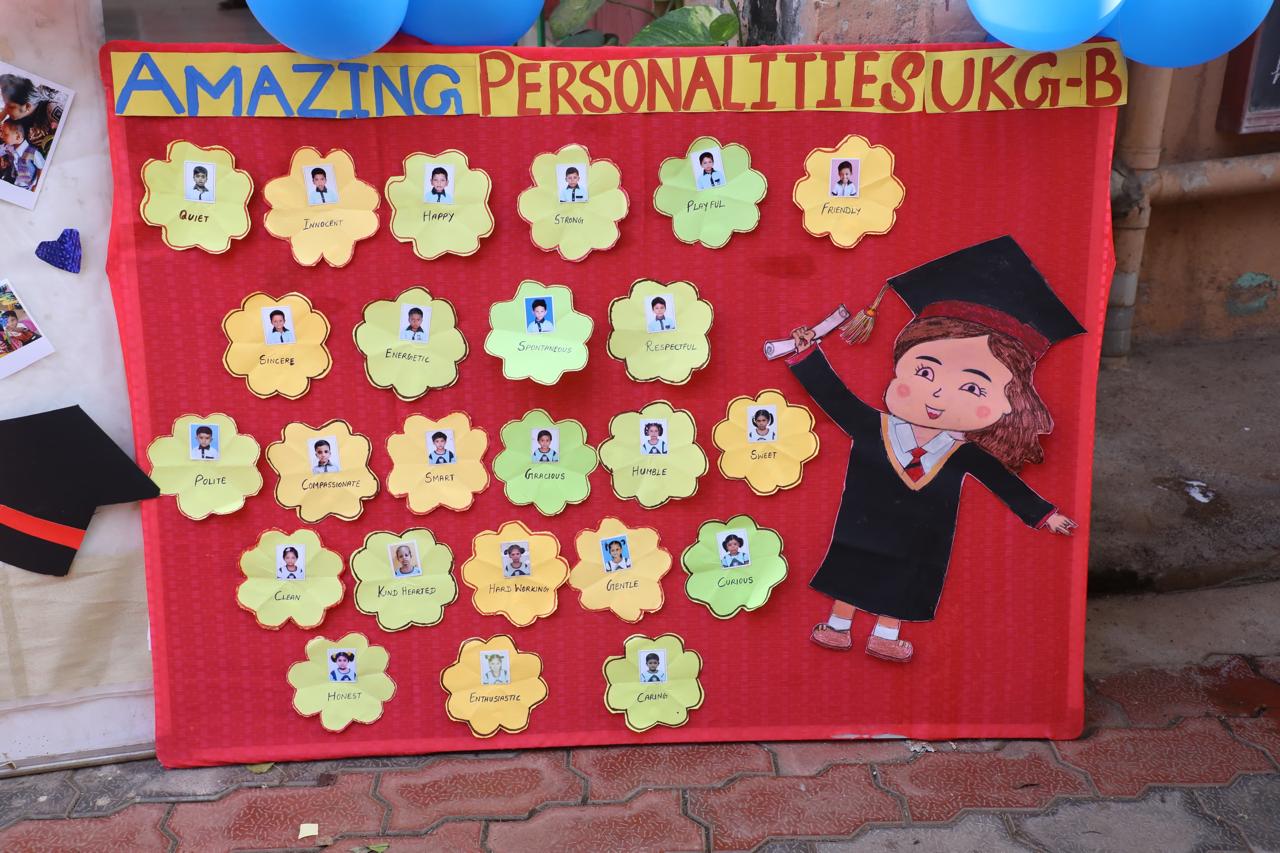 AMAZING PERSONALITIES UKG-B
QUIET INNOCENT HAPPY STRONG PLAYFUL FRIENDLY
SINCERE ENERGETIC SPONTANEOUS RESPECTFUL
POLITE COMPASSIONATE SMART GRACIOUS HUMBLE SWEET
CLEAN KIND HEARTED HARD WORKING GENTLE CURIOUS
HONEST ENTHUSIASTIC CARING